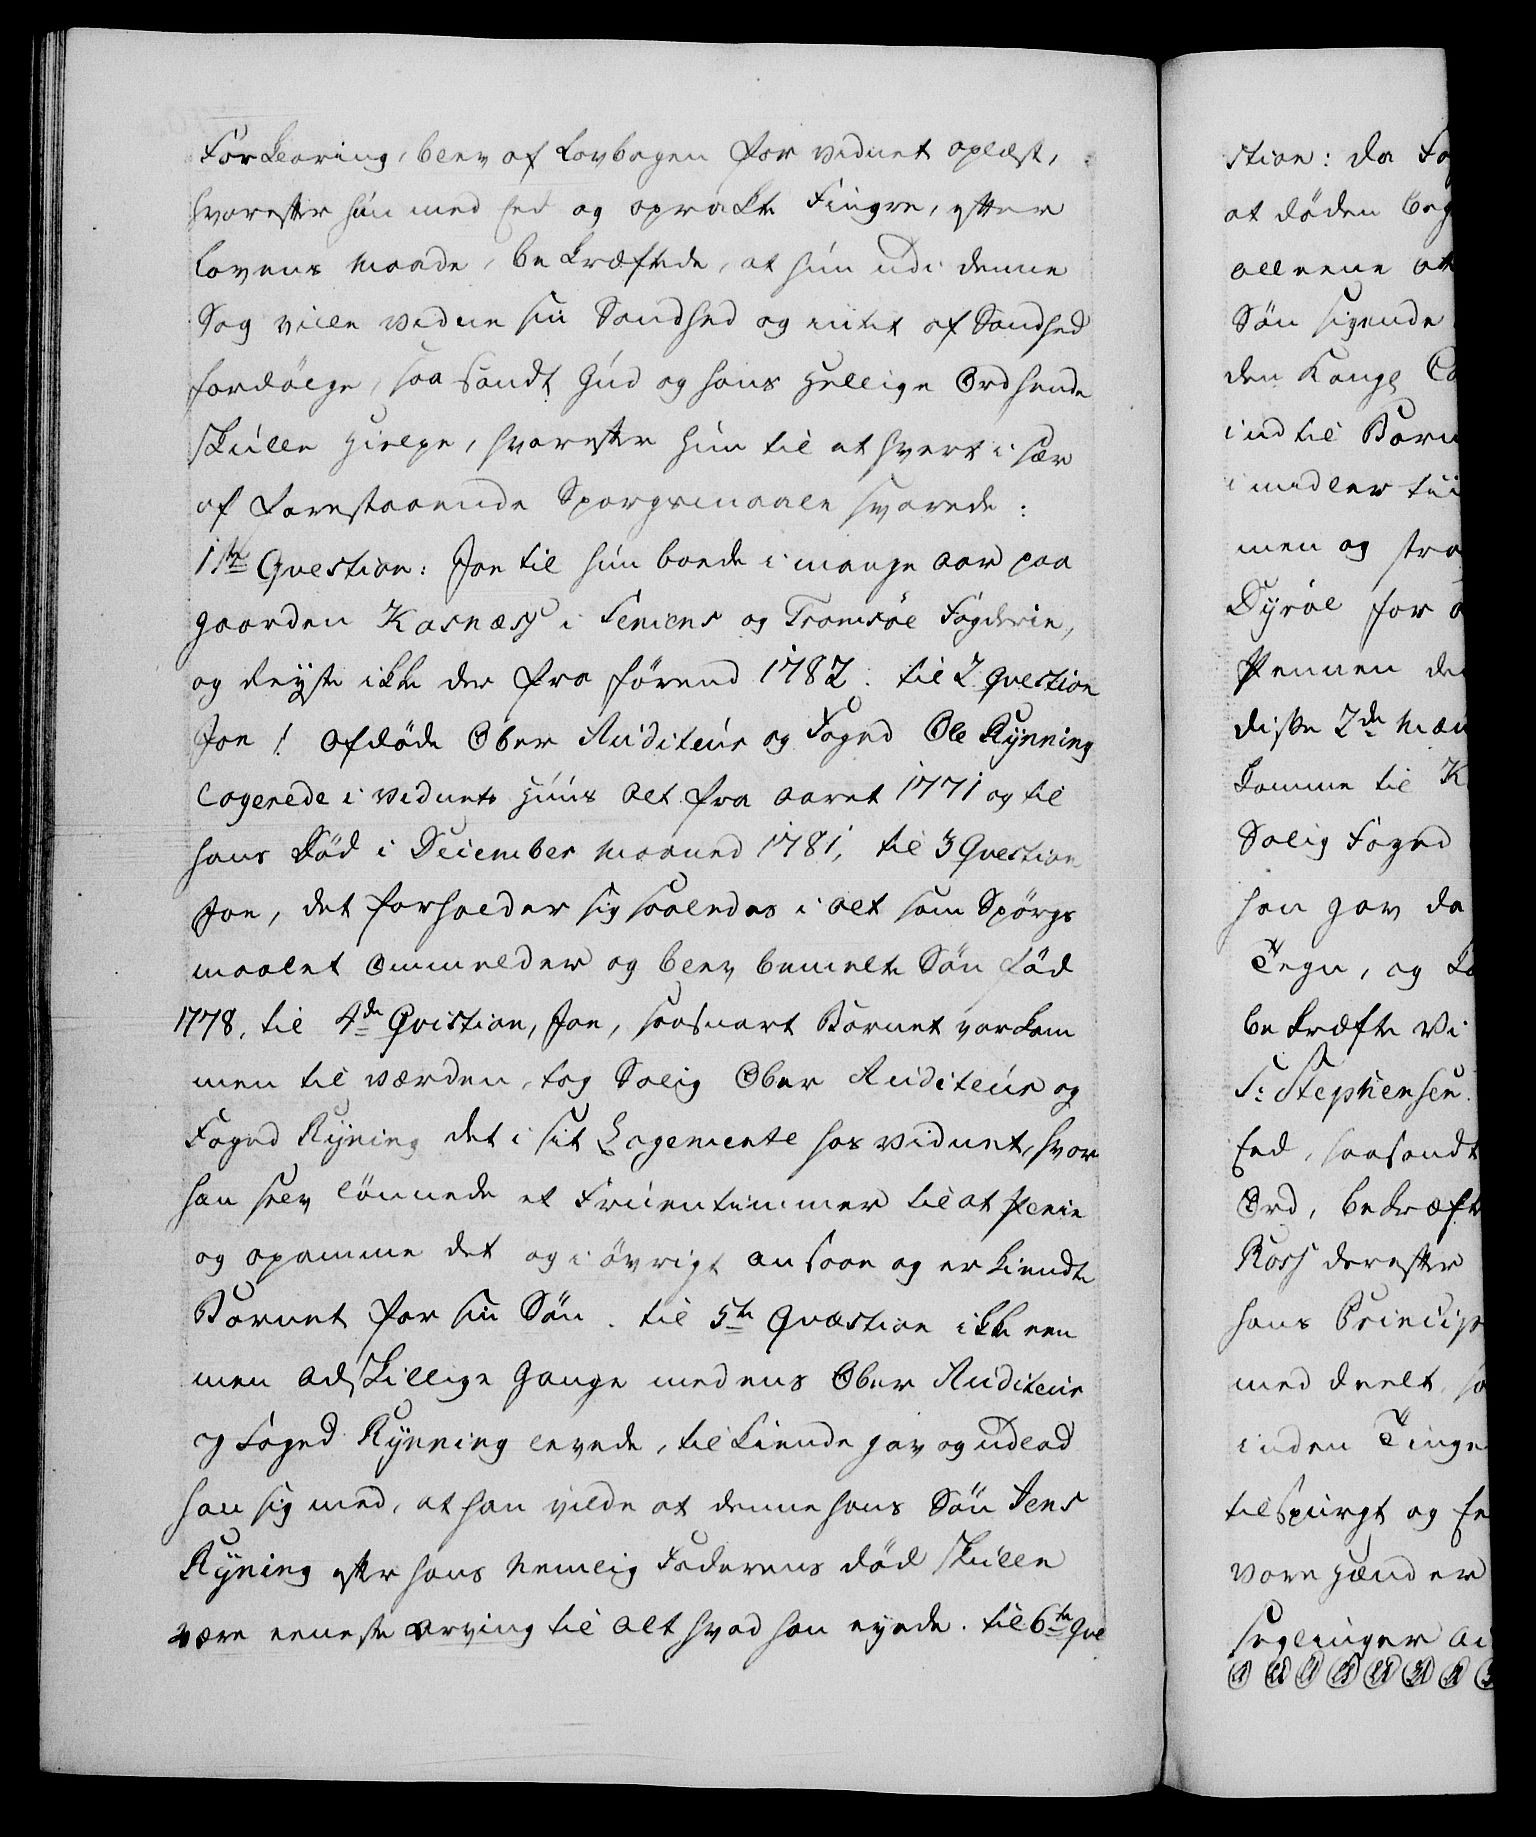 Forklaring, blev af Lovbogen for vidnet oplæst,
hvorefter hun med Eed og oprakte Fingre, efter
Lovens Maade, bekræftede, at hun udi denne
Sag ville vidne sin Sandhed og intet af Sandhed
fordölge, saa sandt Gud og hans Hellige Ord hende
skulle Hielpe, hvorefter Hun til at hvert i sær
af Forestaaende Spørgsmaale svarede:
1ste Question: Jae til hun boede i mange aar paa
gaarden Kasnæs i Seniens og Tromsöe Fogderie,
og reyste ikke der fra förend 1782. til 2 Qvestion
Jae! Afdöde Ober Auditeur og Foged Ole Rynning
logerede i vidnets Huus alt fra aaret 1771 og til
hans Död i December Maaned 1781, til 3 Qvestion
Jae, det forholder sig saaledes i alt som Spörgs
maalet Ommelder og blev bemelte Sön föd
1778. til 4de Qvistion, Jae, saasnart Barnet var kom
men til værden, tog Salig Ober Auditeur og
Foged Ryning det i sit Logemente hos vidnet, hvor
han selv lönnede et Fruentimmer til at pleie
og opamme det og i övrigt ansaae og erkiendte
Barnet for sin Sön. til 5te Qvæstion ikke een
men adskillige Gange medens Ober Auditeur
og Foged Rynning levede, tilkiende gav og udlod
han sig med, at han vilde at denne hans Sön Jens
Ryning efter hans nemlig Faderens död skulle
være eeneste arving til alt hvad han eyede. til 6te Qve
stion: da Fo
at döden beg
alleene at
Sön sigende
den Kongl Co
indtil Barn
imidler tii
men og stra
Dyröe for
Pennen de
disse 2de Mæn
komme til K
Salig Foged
han gav da
Tegn, og
bekræfte Vi
S: Stephensen.
Eed, saasandt
Ord, bekræft
Ross derefter
hans Princip
meddeelt, sa
inden Tinge
tilspurgt og Ee
vore Hænder